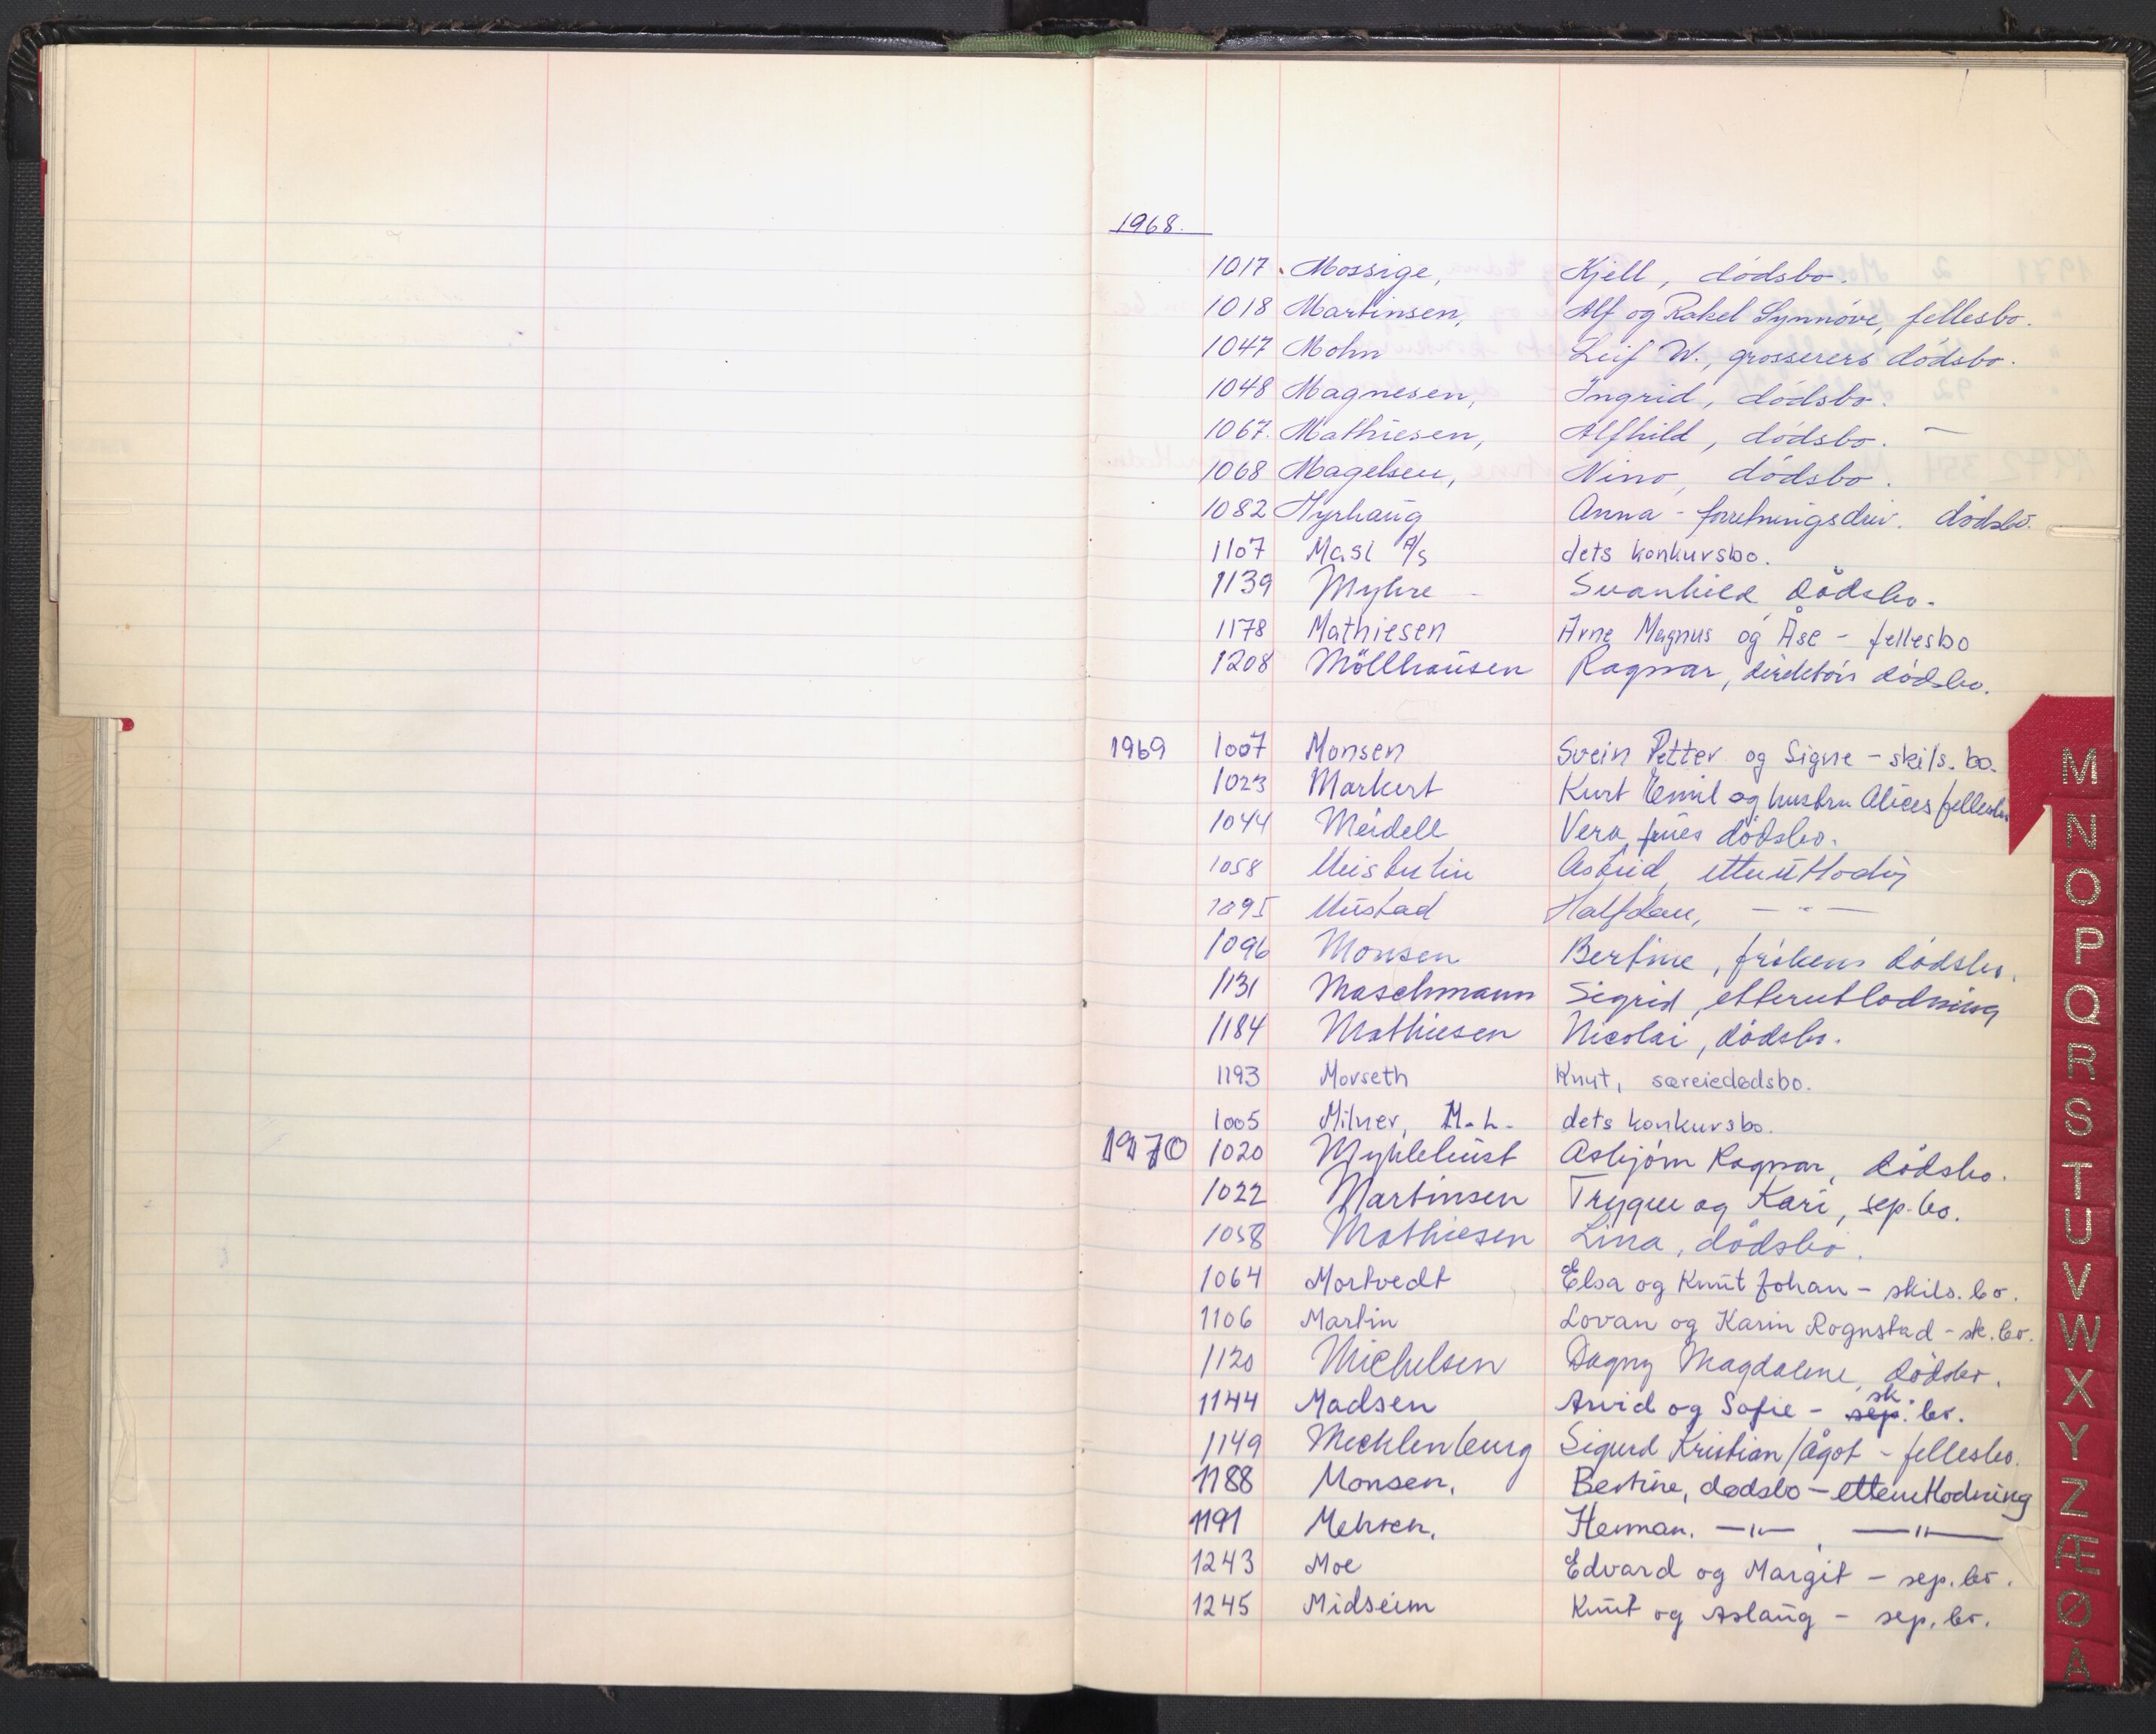 1968.
1017 Mossige, Kjell, dödsbo.
1018 Martinsen, Alf og Rakel Synnöve, fellesbo.
1047 Mohn Leif W., grosserers dödsbo.
1048 Magnesen, Ingrid, dödsbo.
1067. Mathiesen, Alfhild, dödsbo. —
1068 Magelsen, Nino, dödsbo.
1082 Myrhaug Anna - forretningsdriv. dödsbo.
1107 Masi A/S dets konkursbo.
1139 Myhre - Svanhild dödsbo.
1178 Mathiesen Arne Magnus og Åse - fellesbo
1208 Möllhausen Ragnar, direktörs dödsbo.
1969 1007 Monsen Svein Petter og Signe - skils. bo.
1023 Markert Kurt Emil og hustru Alices fellesbo.
1044 Meidell Vera, frues dödsbo.
1058 Astrid, etterutlodn
1095 Mustad Halfdan, — " —
1096 Monsen Bertine, frökens dödsbo.
1131 Maschmann Sigrid, etterutlodning
1184 Mathiesen Nicolai, dödsbo.
1193 Morseth Knut, særeiedødsbo.
1005 Milner, M.L. dets konkursbo.
1970 1020 Myklebust Asbjörn Ragnar, dödsbo.
1022 Martinsen Trygve og Kari, sep. bo.
1058 Mathiesen Lina, dödsbo.
1064 Mortvedt Elsa og Knut Johan - skils. bo.
1106 Martin Lovan og Karin Rognstad - sk. bo.
1120 Michelsen Dagny Magdalene, dödsbo.
1144 Madsen Arvid og Sofie - sep. sk. bo.
1149 Mecklenburg Sigurd Kristian / Ågot - fellesbo.
1188 Monsen, Bertine, dødsbo - etterutlodning
1191 Mehren, Herman. —"— , —"—
1243 Moe Edvard og Margit - sep. bo.
1245 Midseim Knut og Aslaug - sep. bo.
M
N
O
P
Q
R
S
T
U
V
W
X
Y
Z
Æ
Ø
Å